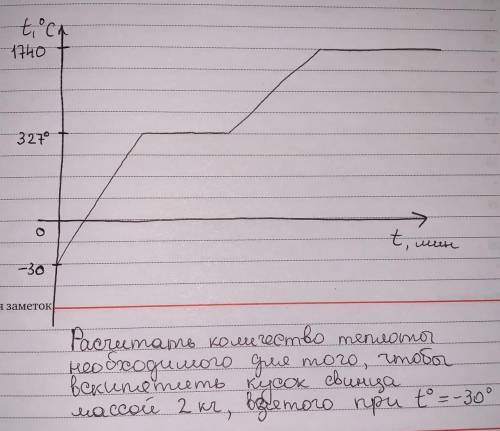 t,°C
1740
327°
0
t, мин
-30
я заметок
Расчитать количество теплоты
необходимого для того, чтобы
вскипятить кусок свинца
массой 2 кг, взятого при t°=-30°